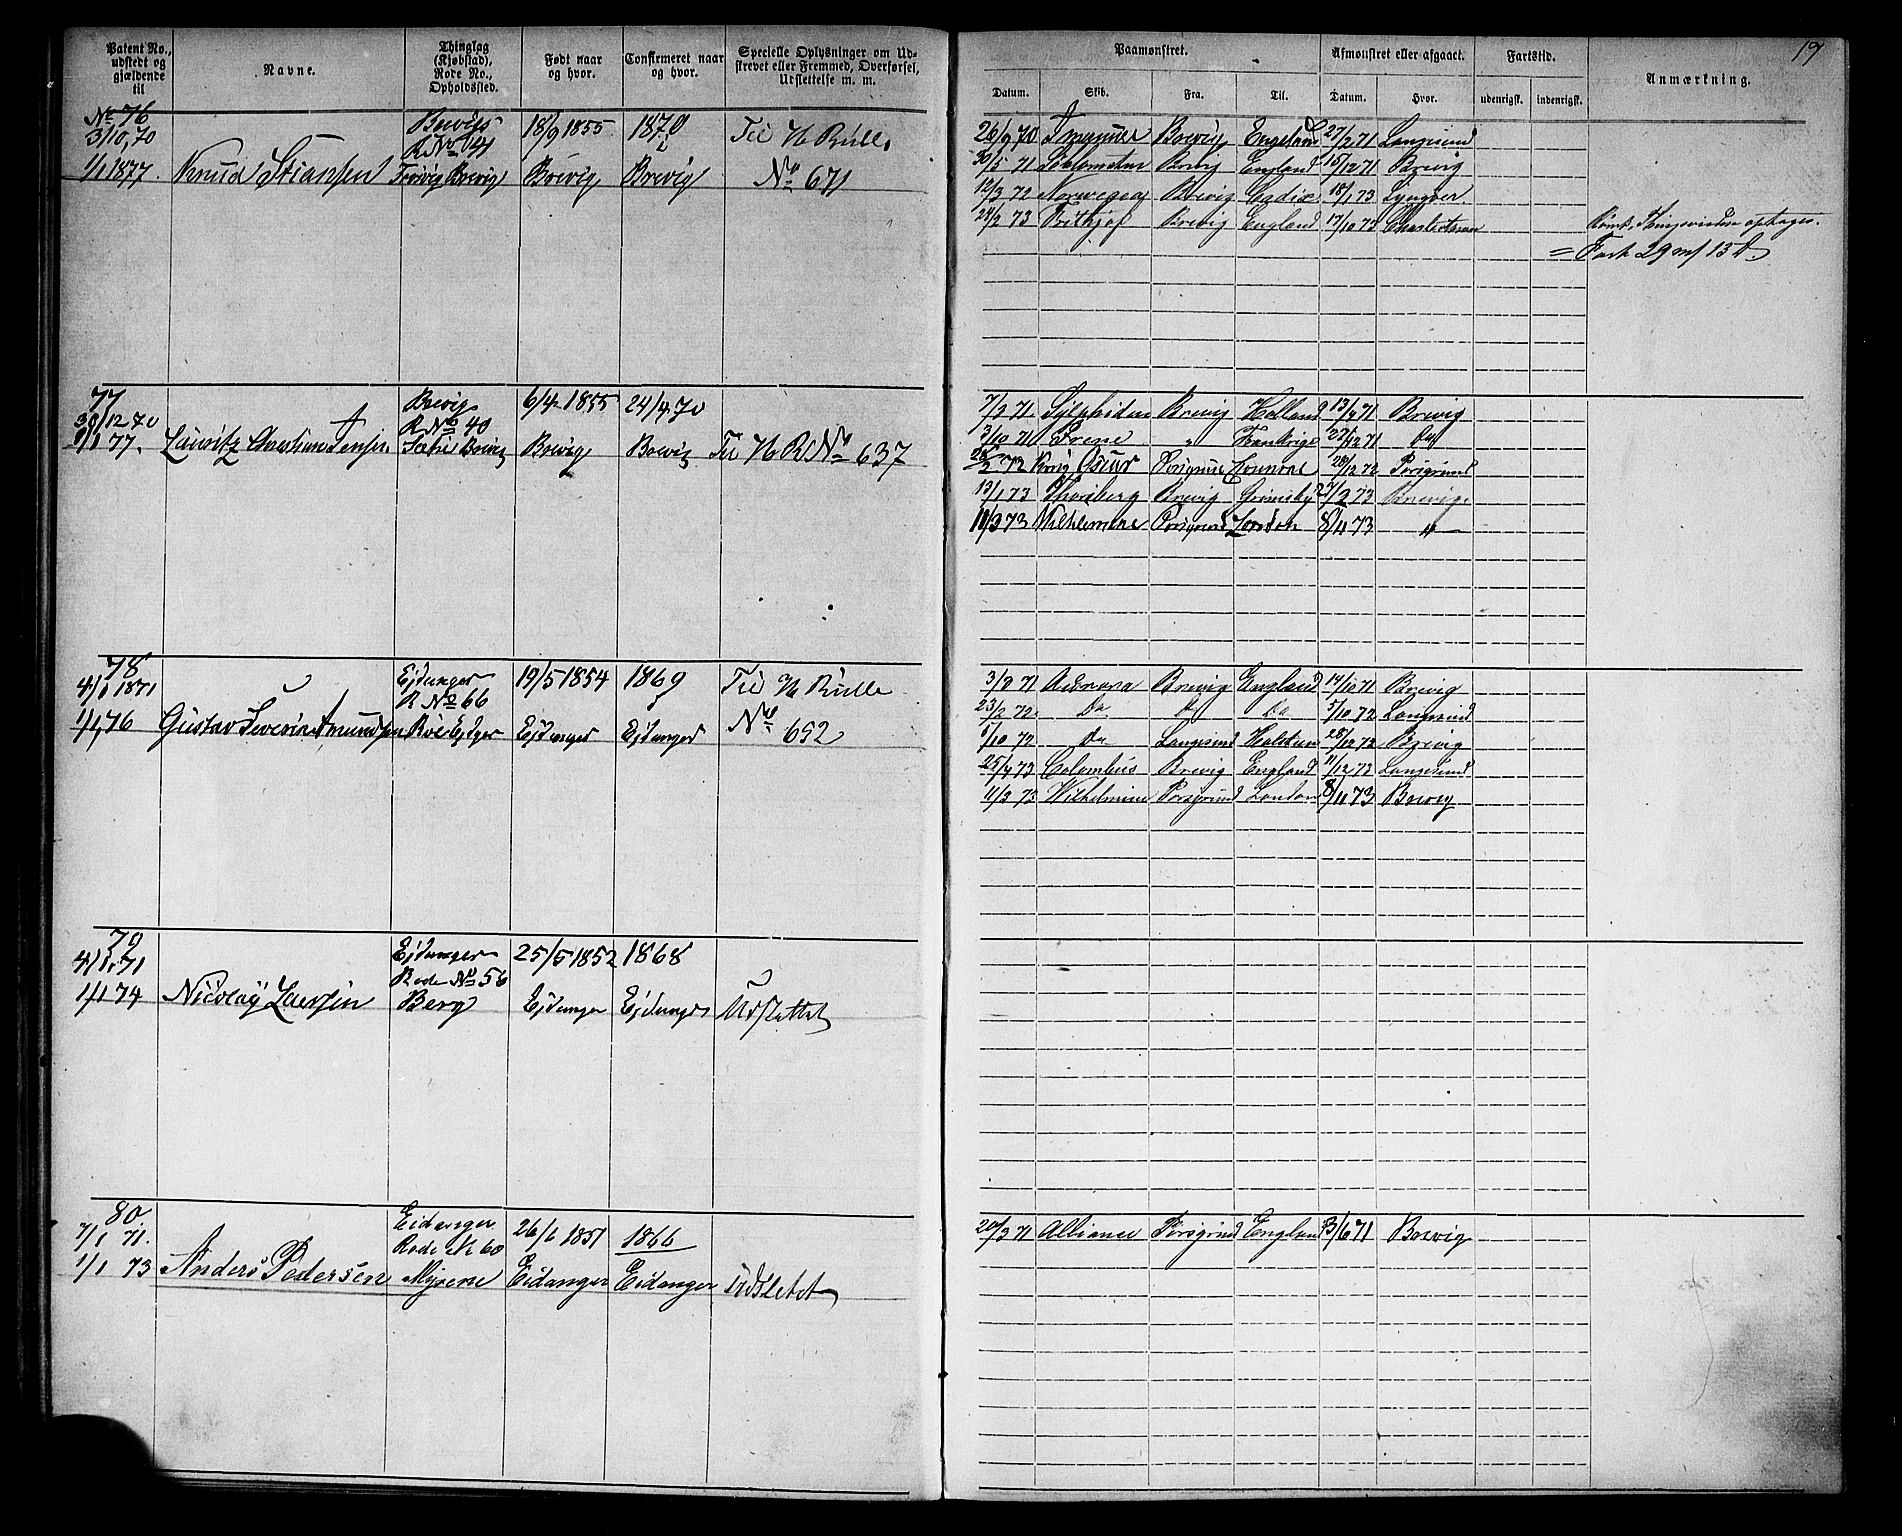 19
Patent No., udstedt og gjældende til
Navne.
Thinglag (Kjøbstad), Rode No., Opholdssted.
Født naar og hvor.
Confirmeret naar og hvor.
Specielle Oplysninger om Udskrevet eller Fremmed, Overførsel, Udslettelse m. m.
Paamønstret.
Afmønstret eller afgaaet.
Fartstid.
Anmærkning.
Datum. Skib. Fra. Til. Datum. Hvor. udenrigsk. indenrigsk.
No 76
3/10 70
1/1 1877. Knud Stiansen
Brevigs
R No
Brevig
18/9 1855
Brevig
1870
Brevig
Til H Rulle
No 671
26/9 70 Brevig England 27/2 71 Langesund
30/5 71 Brevig England 15/12 71 Brevig
12/3 72 Norwegea Brevig Cadix 18/1 73 Lyngøer
24/2 73 Frithjof Brevig England 17/10 73
Rømt,
= Fart 29 m/ 13 d.
77
30/12 70
1/1 77. Lauritz Christian Jensen
Brevig
R No 40
Brevig
6/4 1855
Brevig
24/4 70
Brevig
Til H R No 637
7/3 71 Sylphiden Brevig Holland 13/9 71 Brevig
3/10 71 Irene " Frankrige 27/12 71 Do
2 72 Brig Oscar Porsgrund 28/12 72 Porsgrund
13/1 73 Thorberg Brevig Grimsby 2 73 Brevig
11/3 73 Wilhelmine Porsgrund London 8/11 73 "
78
4/1 1871
1/1 76 Gustav Severin Amundsen
Ejdanger
R No 66
Ejdger
19/5 1854
Ejdanger
1869
Ejdanger
Til H Rulle
No 652
3/9 71 Aurora Brevig England 14/10 71 Brevig
23/2 72 Do Do Do 5/10 72 Langesund
1/10 72 Do Langesund 28/12 72 Brevig
25/4 73 Colombus Brevig England 11/12 73 Langesund
11/3 75 Wilhelmine Porsgrund London 8/11 73 Brevig
79
4/1 71
1/1 74 Nicolay Larsen
Ejdanger
Rode No 56
Berg
25/5 1852
Ejdanger
1868
Ejdanger
Udslettet
80.
7/1 71.
1/1 73 Anders Pedersen
Eidanger
Rode No 60
Myrene
26/6 1851
Eidanger
1866
Eidanger
Udslettet
20/3 71 Alliance Porsgrund England 3/6 71 Brevig